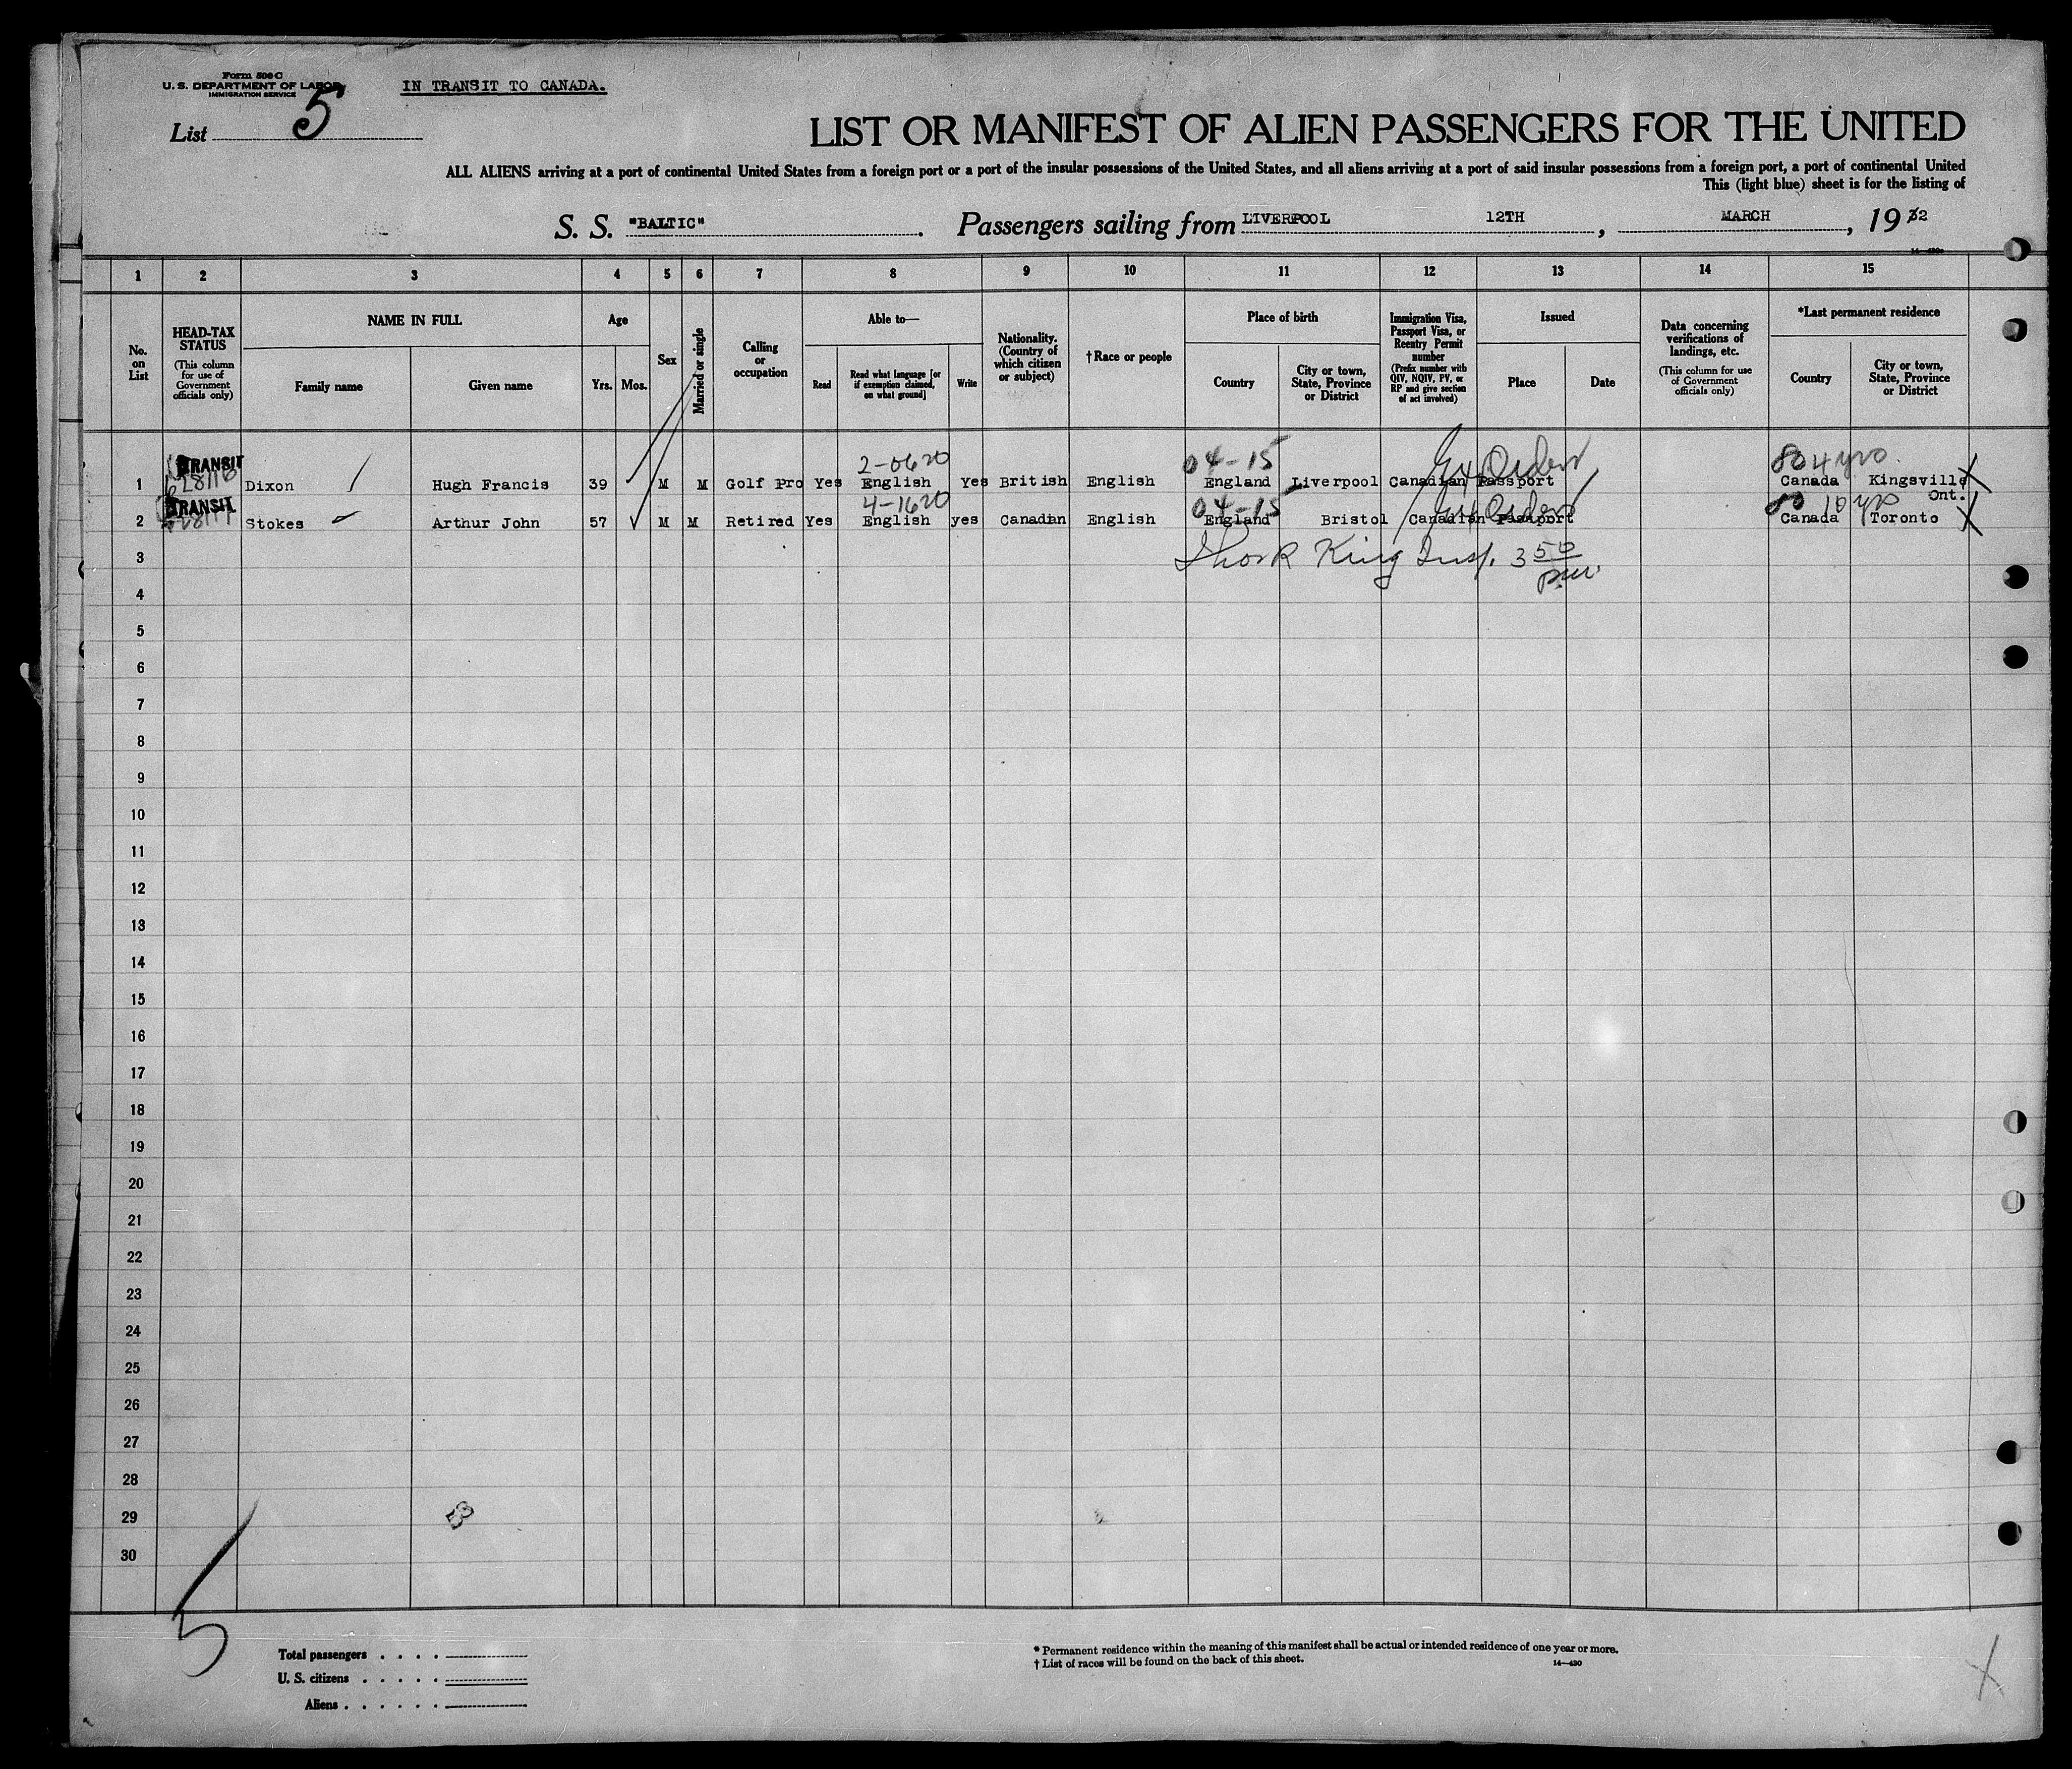 Form 500 C
U. S. DEPARTMENT OF LABOR
IMMIGRATION SERVICE
IN TRANSIT TO CANADA.
List 5
LIST OR MANIFEST OF ALIEN PASSENGERS FOR THE UNITED
ALL ALIENS arriving at a port of continental United States from a foreign port or a port of the insular possessions of the United States, and all aliens arriving at a port of said insular possessions from a foreign port, a port of continental United
This (light blue) sheet is for the listing of
S. S. "BALTIC". Passengers sailing from LIVERPOOL 12TH, MARCH, 1932
1 2 3 4 5 6 7 8 9 10 11 12 13 14 15
No. on List
HEAD-TAX STATUS
(This column for use of Government officials only)
NAME IN FULL
Family name
Given name
Age
Yrs. Mos.
Sex
Married or single
Calling or occupation
Able to—
Read
Read what language [or if exemption claimed, on what ground]
Write
Nationality. (Country of which citizen or subject)
†Race or people
Place of birth
Country
City or town, State, Province or District
Immigration Visa, Passport Visa, or Reentry Permit number
(Prefix number with QIV, NQIV, PV, or RP and give section of act involved)
Issued
Place
Date
Data concerning verifications of landings, etc.
(This column for use of Government officials only)
*Last permanent residence
Country
City or town, State, Province or District
TRANSIT 2-0620 04-15 Order 80 4 yrs.
1 Dixon Hugh Francis 39 M M Golf Pro Yes English Yes British English England Liverpool Canadian Passport Canada Kingsville Ont.
TRANSIT 4-1620 04-15 Order 10 yrs
2 Stokes Arthur John 57 M M Retired Yes English yes Canadian English England Bristol Canadian Passport Canada Toronto
3 King Insp. 3 50 pm.
4
5
6
7
8
9
10
11
12
13
14
15
16
17
18
19
20
21
22
23
24
25
26
27
28
29
30
5
Total passengers . . . .
U. S. citizens . . . . .
Aliens . . . . . .
* Permanent residence within the meaning of this manifest shall be actual or intended residence of one year or more.
† List of races will be found on the back of this sheet.
14—430